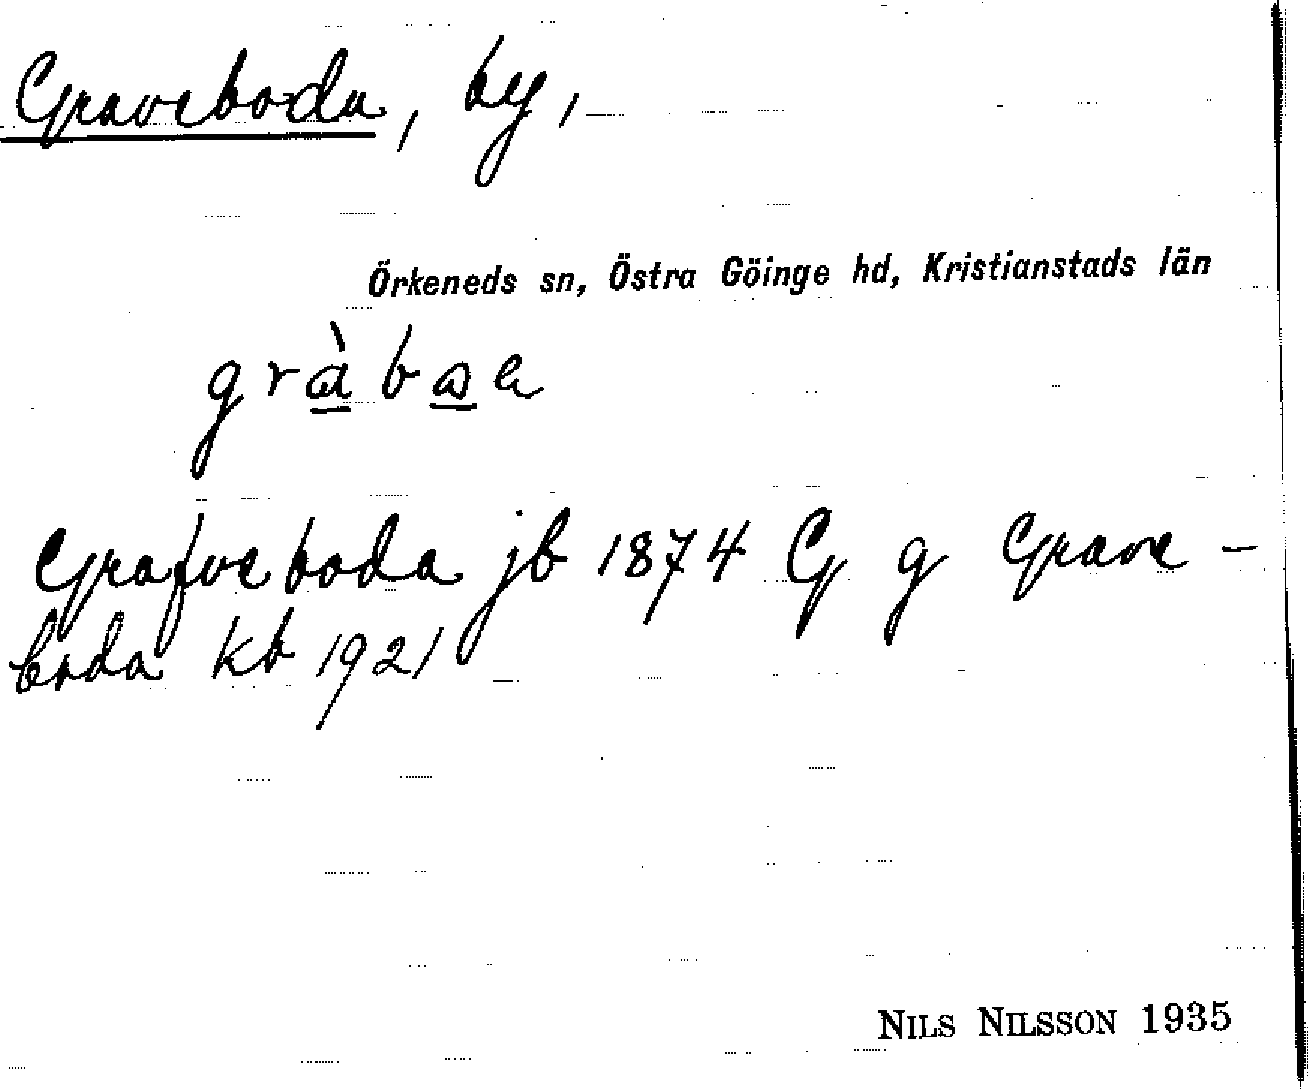 Graveboda, by,
Örkeneds sn, Östra Göinge hd, Kristianstads län
Grafveboda jb 1874 G g Grave-
boda kb 1921
NILS NILSSON 1935